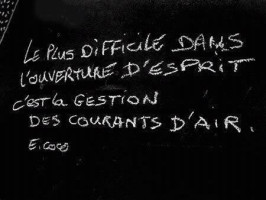 LE PLUS DIFFICILE DANS
L'OUVERTURE D'ESPRIT
C'EST la GESTION
DES COURANTS D'AIR.
E. COCO